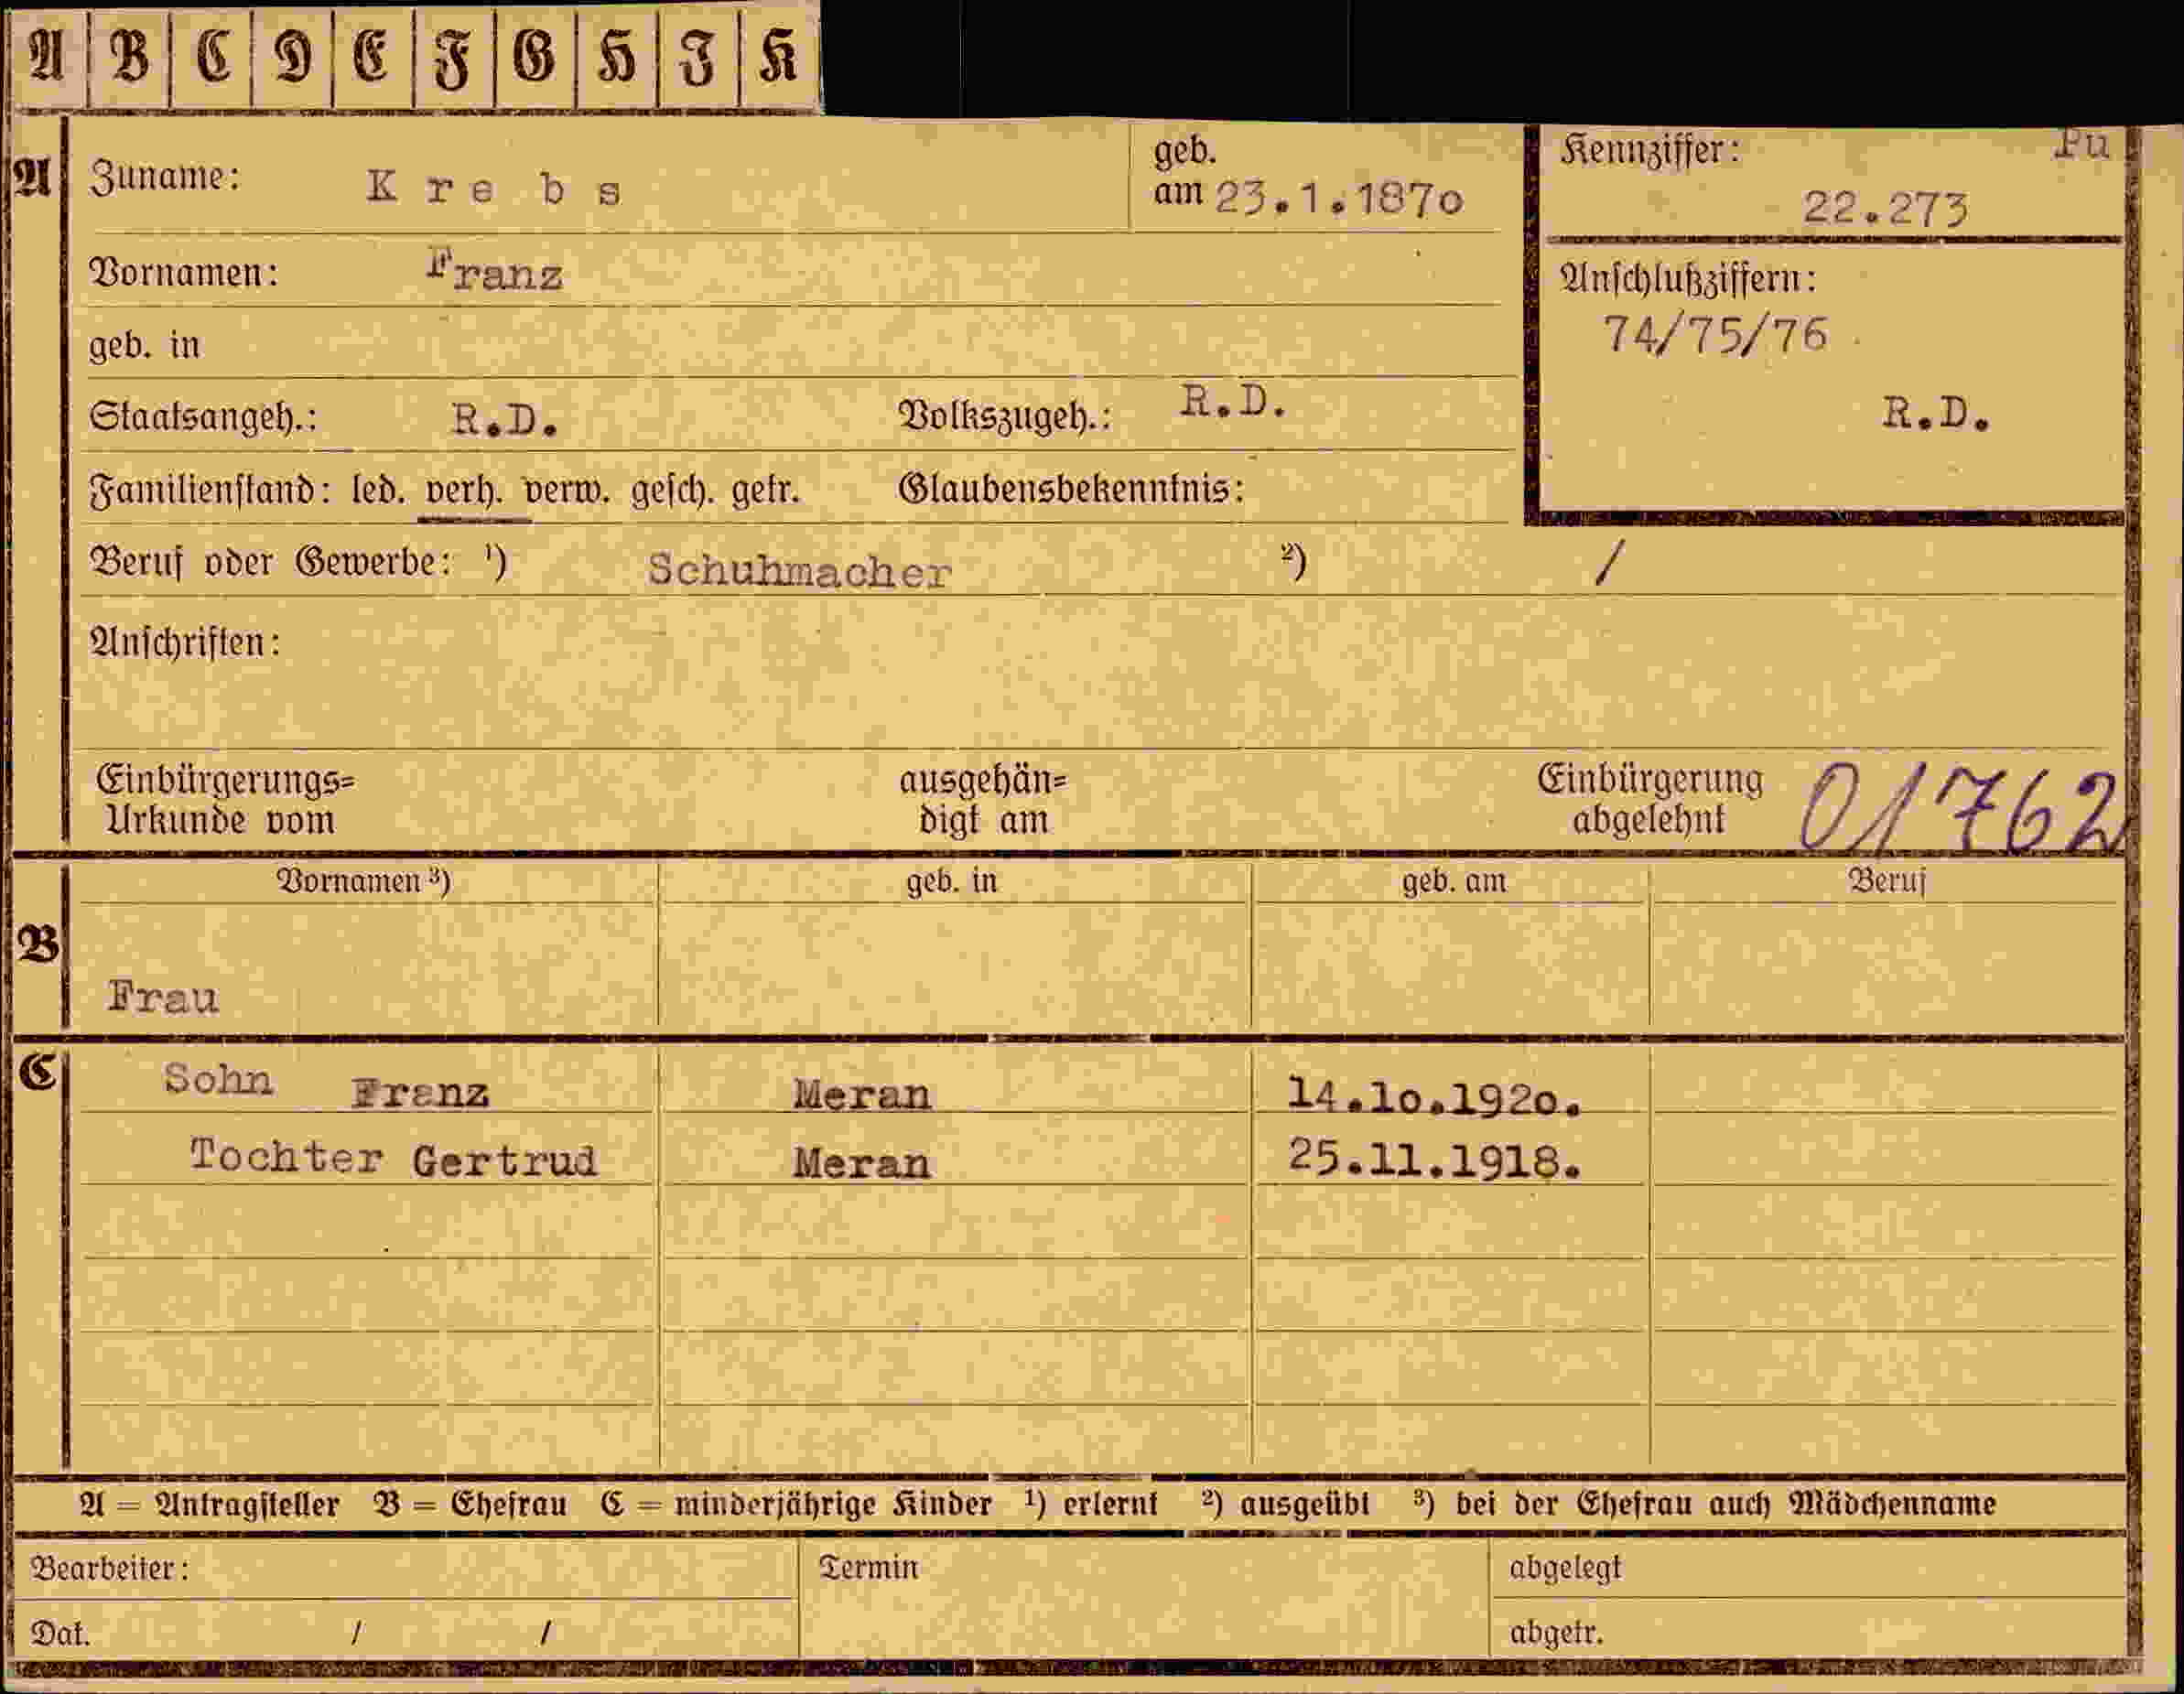 A B C D E F G H I K
A Zuname: Krebs geb. am 23.1.1870
Kennziffer: Pu
22.273
Vornamen: Franz
Anschlußziffern:
74/75/76
R.D.
geb. in
Staatsangeh.: R.D. Volkszugeh.: R.D.
Familienstand: led. verh. verw. gesch. getr. Glaubensbekenntnis:
Beruf oder Gewerbe: ¹) Schuhmacher ²) /
Anschriften:
Einbürgerungs= ausgehän= Einbürgerung 01762
Urkunde vom digt am abgelehnt
Vornamen ³) geb. in geb. am Beruf
B
Frau
C Sohn Franz Meran 14.10.1920.
Tochter Gertrud Meran 25.11.1918.
A = Antragsteller B = Ehefrau C = minderjährige Kinder ¹) erlernt ²) ausgeübt ³) bei der Ehefrau auch Mädchenname
Bearbeiter: Termin abgelegt
Dat. / / abgetr.